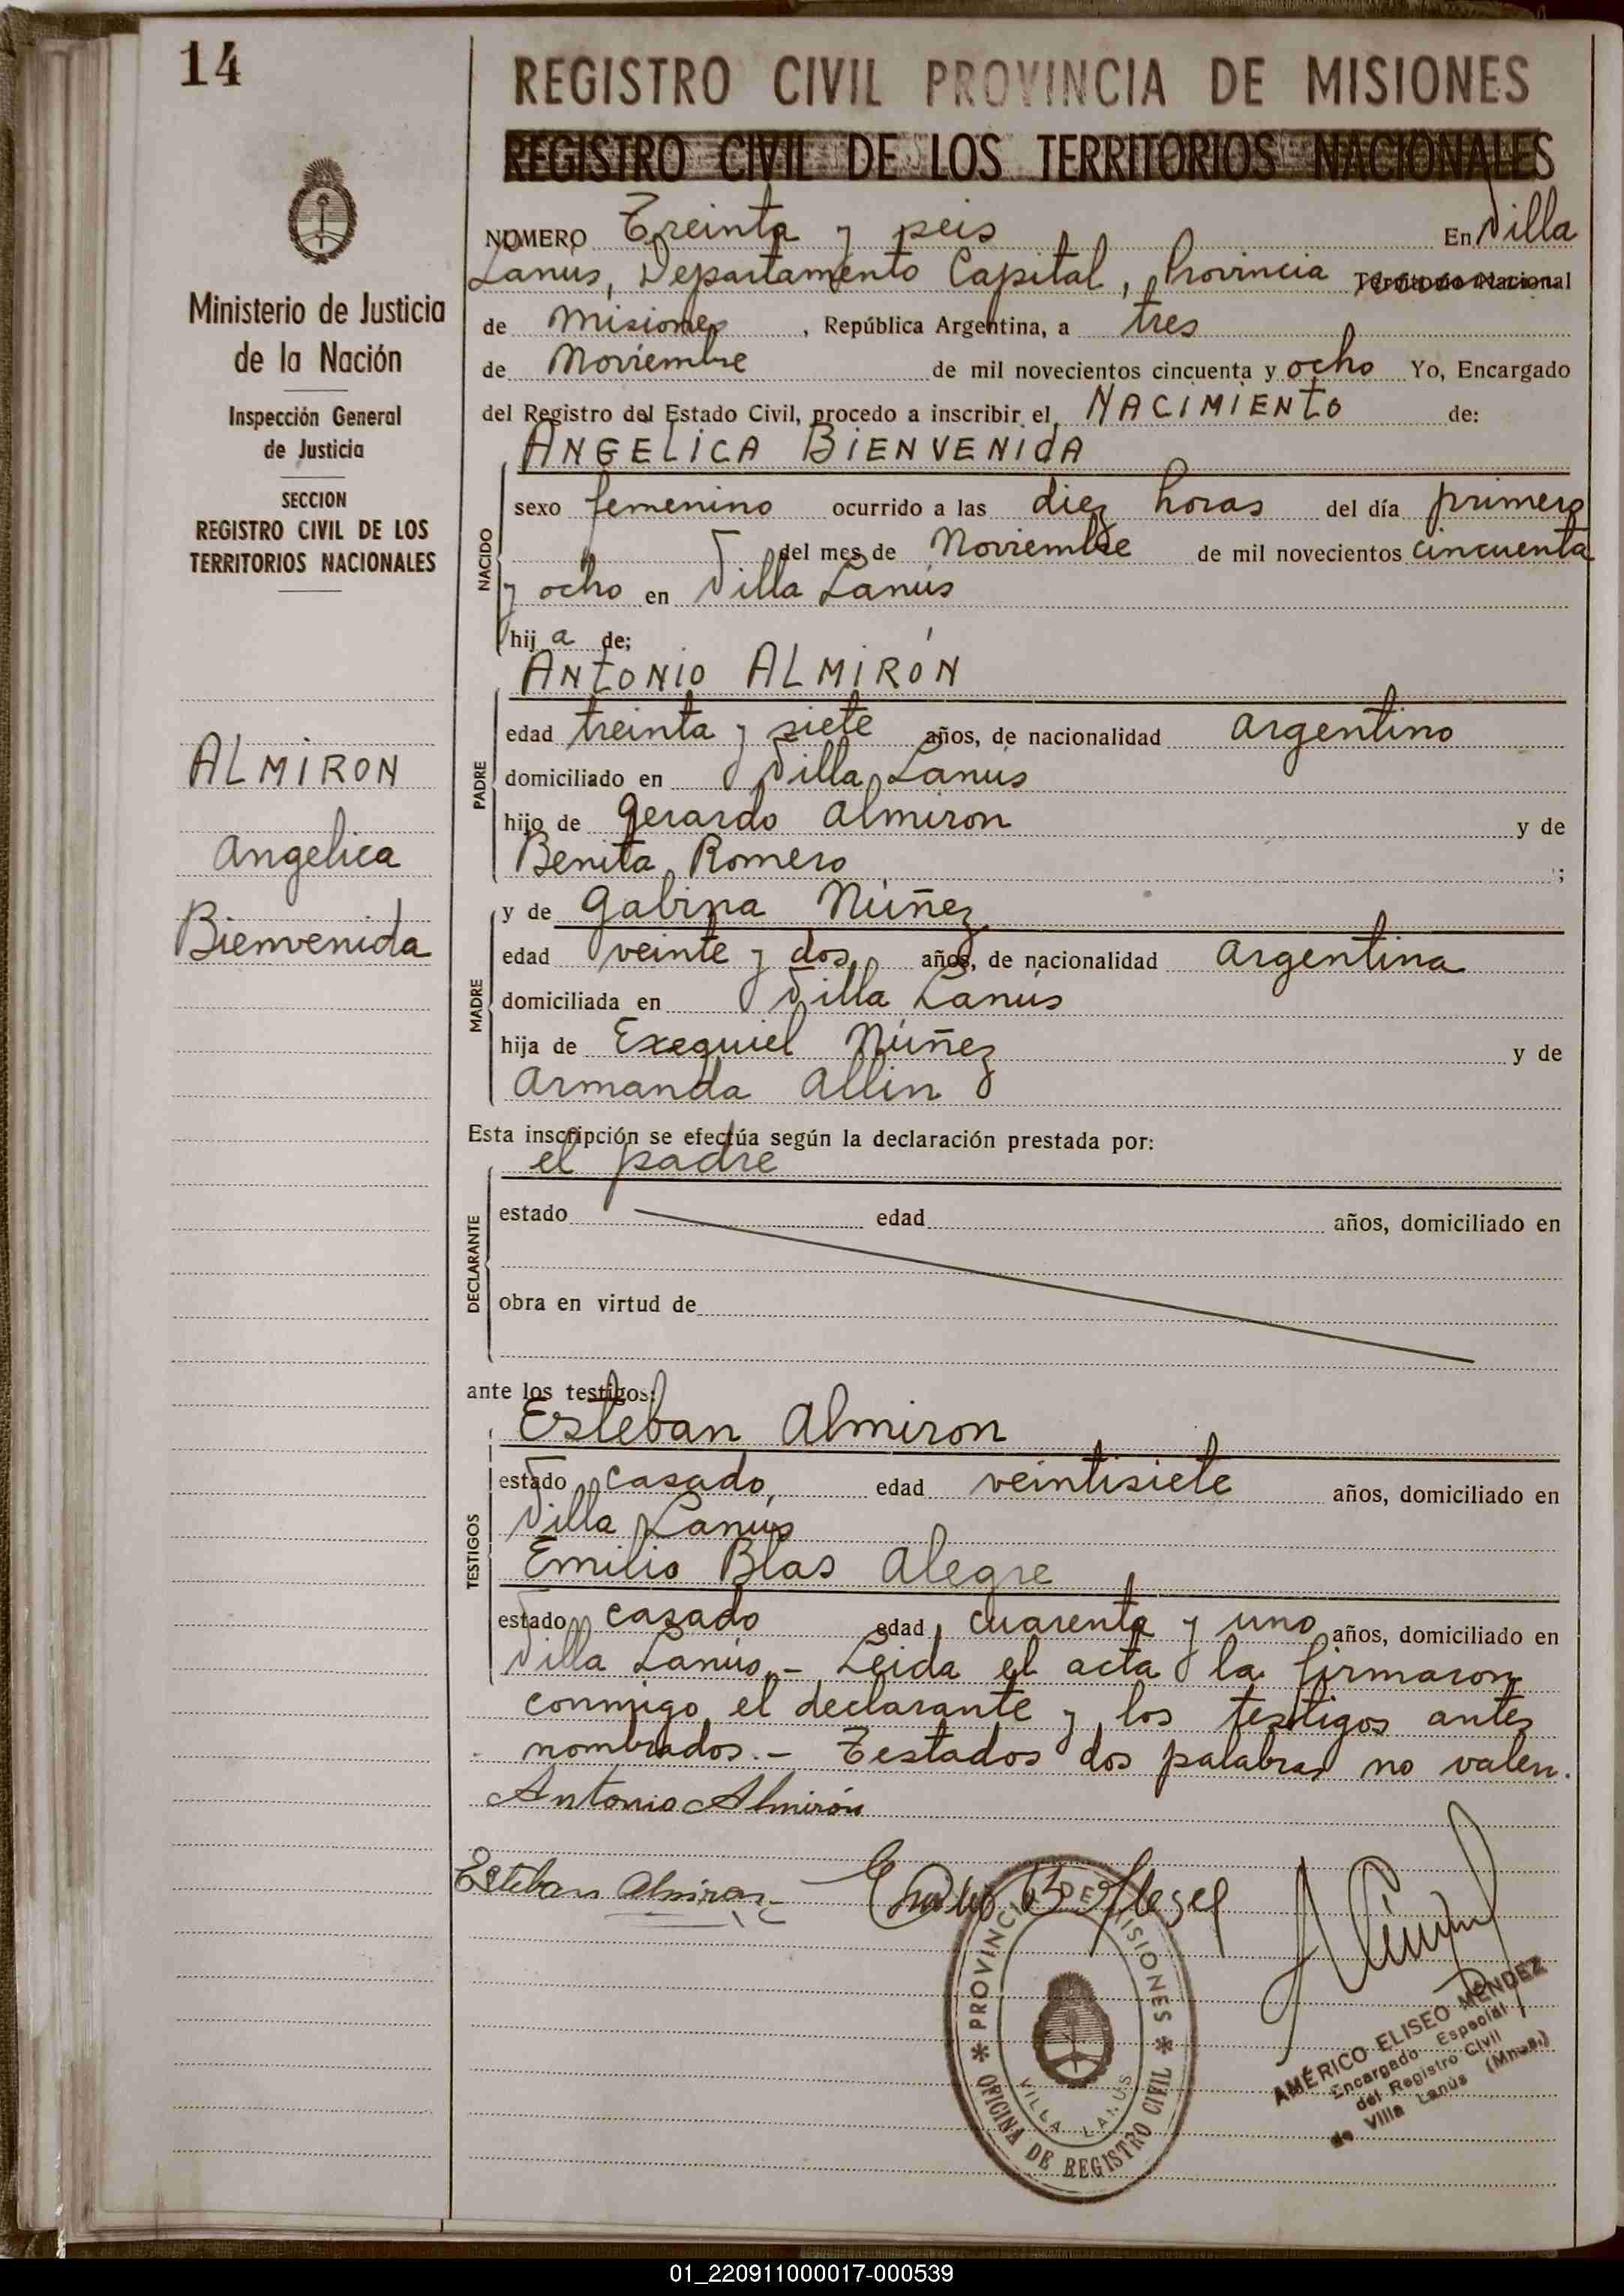 14
REGISTRO CIVIL PROVINCIA DE MISIONES
REGISTRO CIVIL DE LOS TERRITORIOS NACIONALES
Ministerio de Justicia
de la Nación
Inspección General
de Justicia
SECCION
REGISTRO CIVIL DE LOS
TERRITORIOS NACIONALES
ALMIRON
Angelica
Bienvenida
NUMERO Treinta y seis En Villa
Lanús, Departamento Capital, Provincia Territorio Nacional
de Misiones, República Argentina, a tres
de Noviembre de mil novecientos cincuenta y ocho Yo, Encargado
del Registro del Estado Civil, procedo a inscribir el NACIMIENTO de:
ANGELICA BIENVENIDA
NACIDO
sexo femenino ocurrido a las diez horas del día primero
del mes de Noviembre de mil novecientos cincuenta
y ocho en Villa Lanús
hij a de;
ANTONIO ALMIRÓN
PADRE
edad treinta y siete años, de nacionalidad argentino
domiciliado en Villa Lanús
hijo de Gerardo Almiron y de
Benita Romero ;
y de Gabina Núñez
MADRE
edad veinte y dos años, de nacionalidad argentina
domiciliada en Villa Lanús
hija de Exequiel Núñez y de
Armanda Allin
Esta inscripción se efectúa según la declaración prestada por:
el padre
DECLARANTE
estado edad años, domiciliado en
obra en virtud de
ante los testigos:
Esteban Almiron
TESTIGOS
estado casado, edad veintisiete años, domiciliado en
Villa Lanús
Emilio Blas Alegre
estado casado edad cuarenta y uno años, domiciliado en
Villa Lanús.- Leida el acta la firmaron
conmigo el declarante y los testigos antes
nombrados.- Testados dos palabras no valen.
Antonio Almirón
Esteban Almiron
Emilio B Alegre
PROVINCIA DE MISIONES
OFICINA DE REGISTRO CIVIL
VILLA LANUS
AMÉRICO ELISEO MÉNDEZ
Encargado Especial
del Registro Civil
de Villa Lanús (Mnes.)
01_220911000017-000539